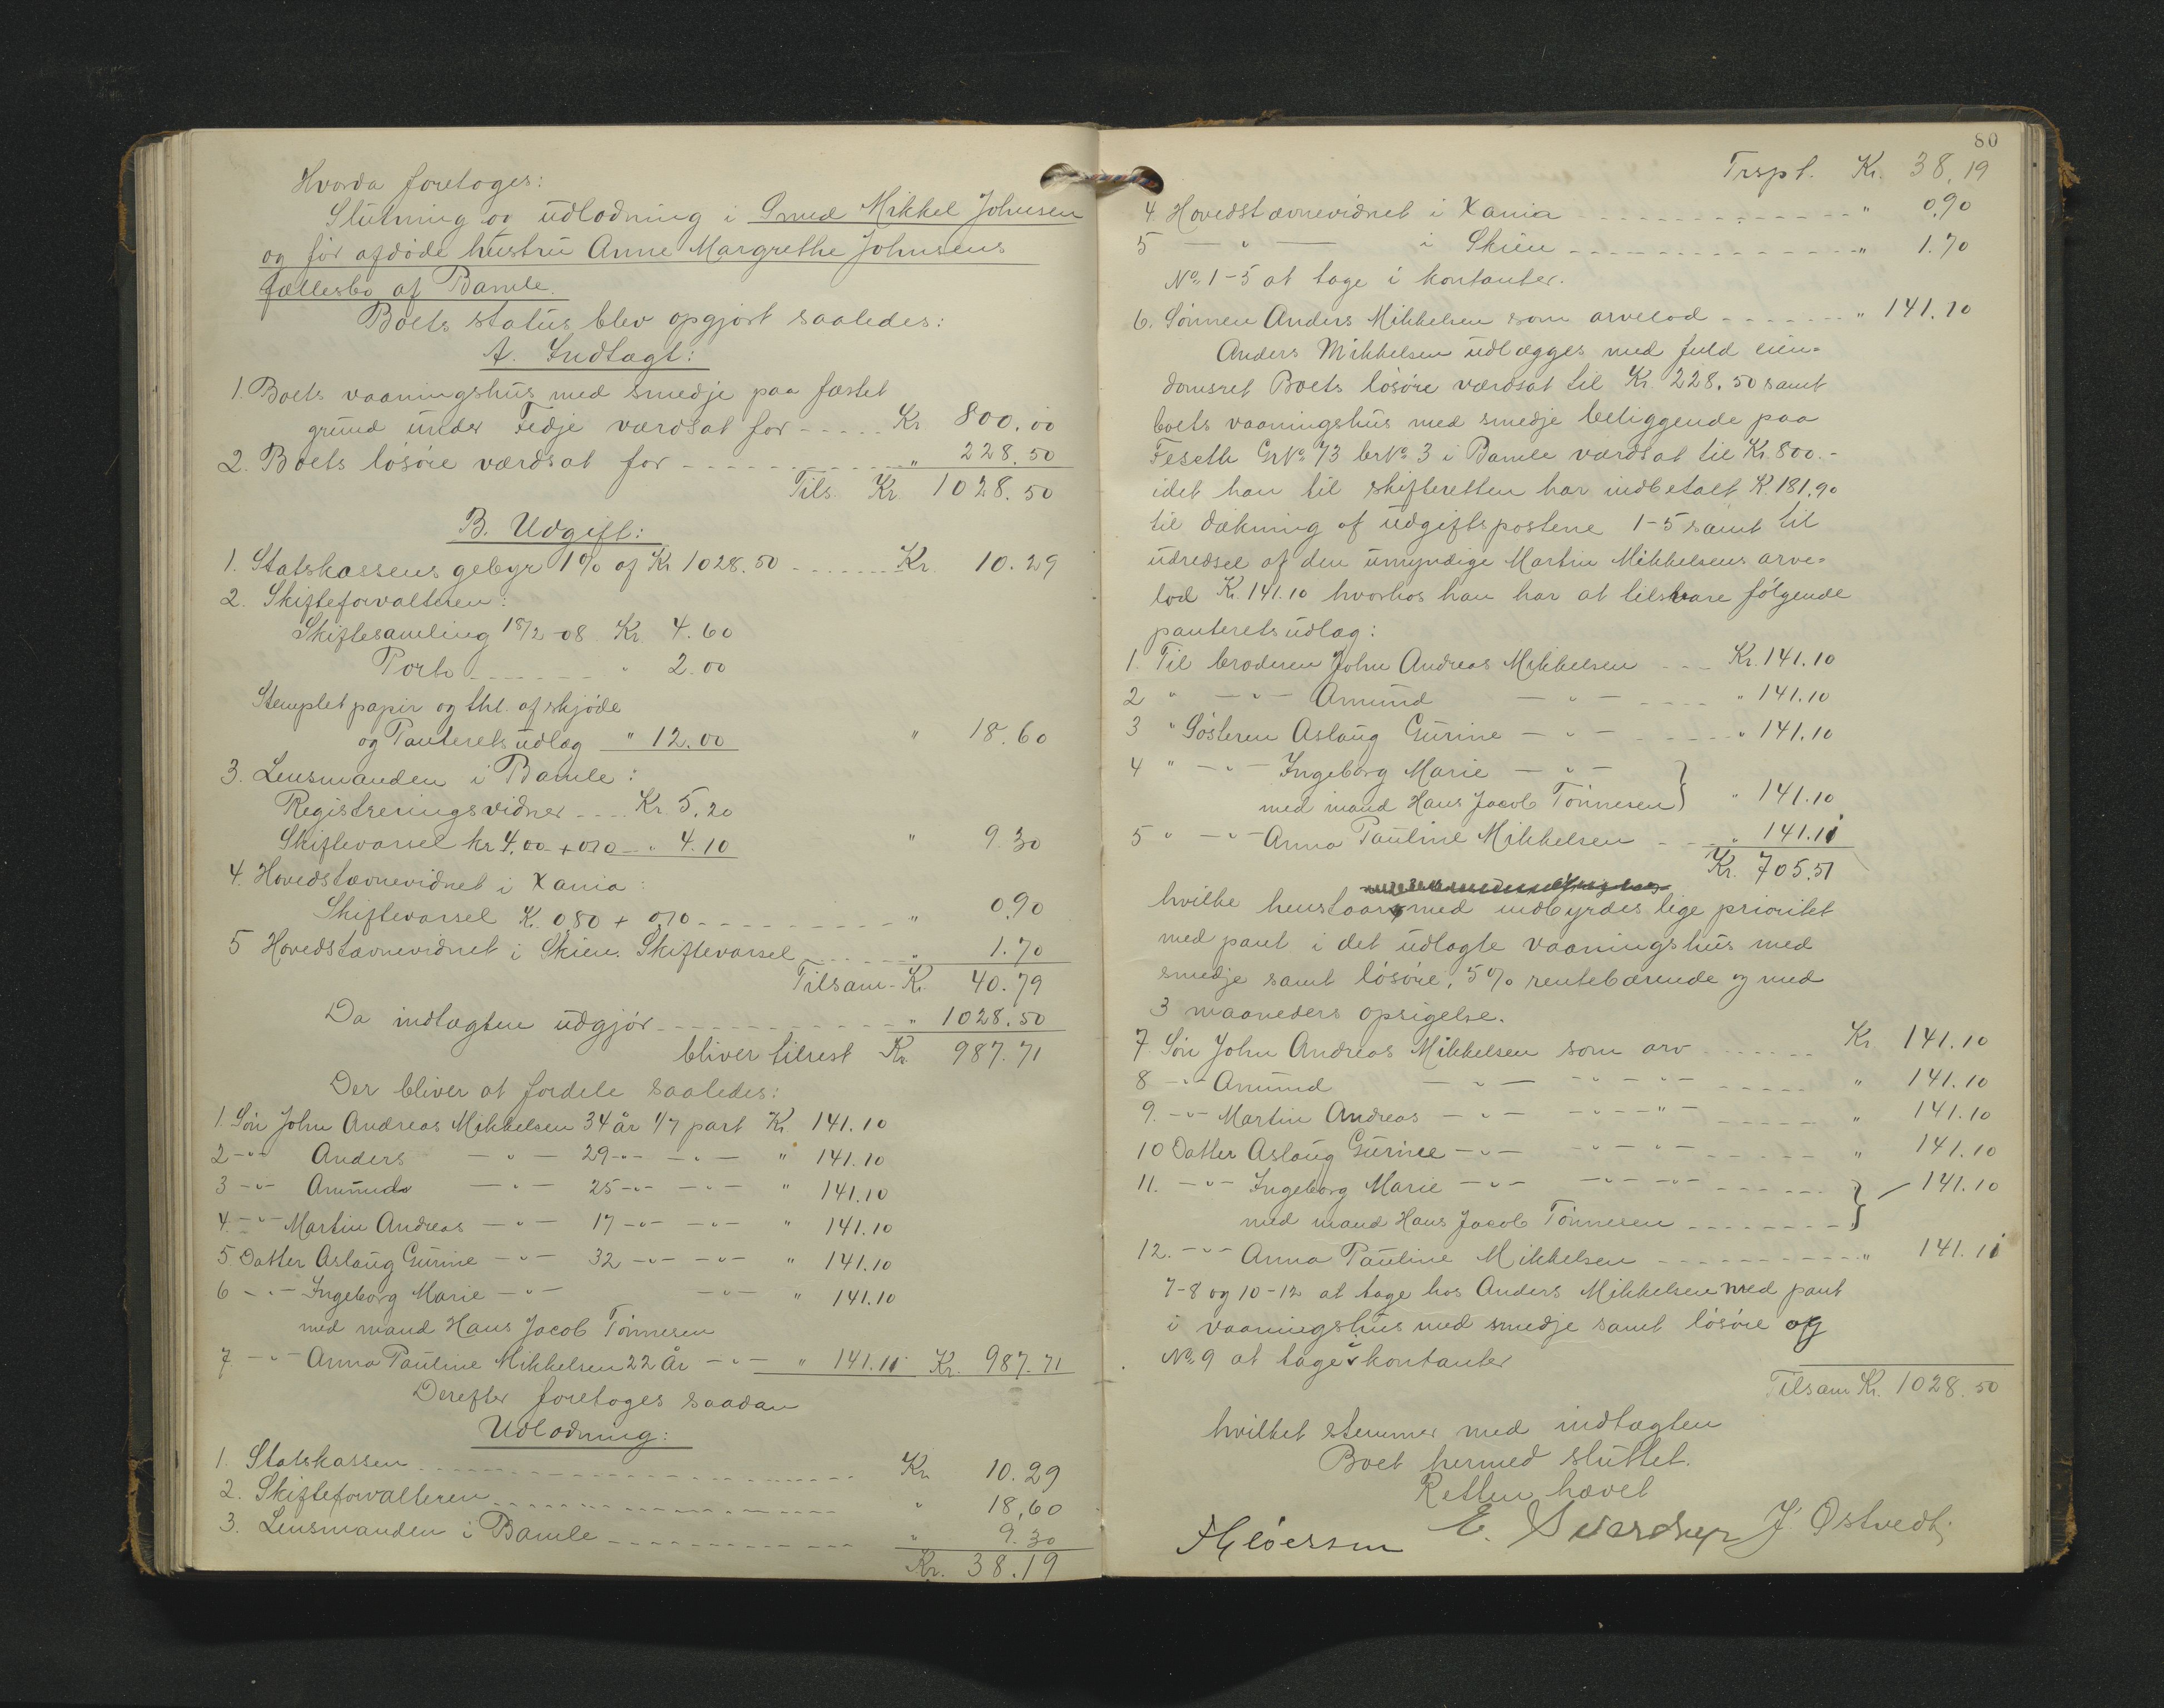 Hvorda foretoges:
Slutning og udlodning i Smed Mikkel Johnsen
og før afdøde hustru Anne Margrethe Johnsens
fællesbo af Bamle.
Boets status blev opgjort saaledes:
A. Indtægt:
1. Boets vaaningshus med smedje paa fæstet
grund under Fedje værdsat for - - - - - Kr 800.00
2. Boets løsøre værdsat for - - - - - " 228.50
Tils. Kr 1028.50
B. Udgift:
1. Statskassens gebyr 1% af Kr 1028.50 - - - - - Kr. 10.29
2. Skifteforvalteren:
Skiftesamling 18/2-08 Kr. 4.60
Porto - - - - - " 2.00
Stemplet papir og thl. af skjøde
og Panteretsudlæg " 12.00 " 18.60
3. Lensmanden i Bamle:
Registreringsvidner - - - - Kr 5.20
Skiftevarsel kr 4.00 + 010 - " 4.10 " 9.30
4. Hovedstævnevidnet i Xania:
Skiftevarsel K. 0,80 + 0,10 - - - - - " 0.90
5 Hovedstævnevidnet i Skien. Skiftevarsel - - - - - " 1.70
Tilsam. Kr. 40.79
Da indtægten udgjør - - - - - " 1028.50
bliver tilrest Kr. 987.71
Der bliver at fordele saaledes:
1. Søn John Andreas Mikkelsen 34 år 1/7 part Kr. 141.10
2 -"- Anders - " - 29 -"- -"- " 141.10
3 -"- Amund - " - 25 -"- -"- " 141.10
4. -"- Martin Andreas - " - 17 -"- -"- " 141.10
5 Datter Aslaug Gurine - " - 32 -"- -"- " 141.10
6 -"- Ingeborg Marie - " - -"- " 141.10
med mand Hans Jacob Tønnesen
7. -"- Anna Pauline Mikkelsen 22 År -"- " 141.11 Kr. 987.71
Derefter foretoges saadan
Udlodning:
1. Statskassen - - - - - Kr. 10.29
2. Skifteforvalteren - - - - - " 18,60
3. Lensmanden i Bamle - - - - - " 9.30
Kr. 38.19
80
Trspt. Kr. 38,19
4. Hovedstævnevidnet i Xania - - - - - " 0,90
5 - " - i Skien - - - - - " 1.70
No. 1-5 at tage i kontanter.
6. Sønnen Anders Mikkelsen som arvelod - - - - - " 141.10
Anders Mikkelsen udlægges med fuld eien-
domsret Boets løsøre værdsat til Kr. 228.50 samt
boets vaaningshus med smedje beliggende paa
Feseth GrNo 73 brNo 3 i Bamle værdsat til Kr. 800.-
idet han til skifteretten har indbetalt K. 181,90
til dækning af udgiftspostene 1-5 samt til
udredsel af den umyndige Martin Mikkelsens arve-
lod Kr. 141.10 hvorhos han har at tilsvare følgende
panteretsudlæg:
1. Til broderen John Andreas Mikkelsen - - - Kr. 141.10
2 " -"- Amund - " - - - - " 141.10
3 " Søsteren Aslaug Gurine - " - - - - - " 141.10
4 " -"- Ingeborg Marie - " -
med mand Hans Jacob Tønnesen } " 141.10
5 " -"- Anna Pauline Mikkelsen - - " 141.11
Kr. 705.51
hvilke henstaar med indbyrdes lige prioritet
med pant i det udlagte vaaningshus med
smedje samt løsøre, 5% rentebærende og med
3 maaneders opsigelse.
7. Søn John Andreas Mikkelsen som arv - - - - - Kr. 141.10
8 -"- Amund - " - -"- -"- - - - - " 141.10
9. -"- Martin Andreas - " - -"- -"- - - - - " 141.10
10 Datter Aslaug Gurine - " - -"- -"- - - - - " 141.10
11. -"- Ingeborg Marie - " - -"- -"- - - - - } 141.10
med mand Hans Jacob Tønnesen - - - - -
12. -"- Anna Pauline Mikkelsen - - - - - " 141.11
7-8 og 10-12 at tage hos Anders Mikkelsen med pant
i vaaningshus med smedje samt løsøre og
No. 9 at tage i kontanter
Tilsam Kr. 1028.50
hvilket stemmer med indtægten
Boet hermed sluttet.
Retten hævet
E. Sverdrup J. Østvedt